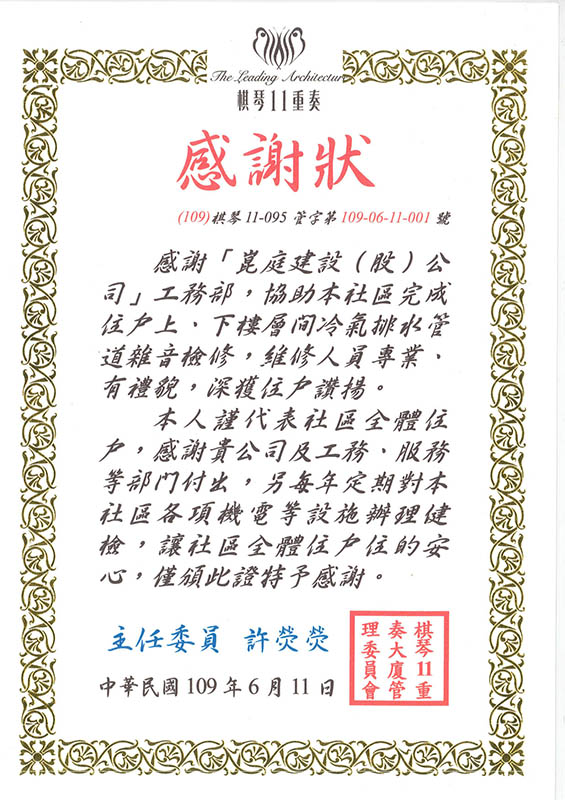 The Leading Architecture
棋琴11重奏
感謝狀
(109)棋琴11-095 管字第109-06-11-001 號
感謝「崑庭建設（股）公
司」工務部，協助本社區完成
住戶上、下樓層間冷氣排水管
道雜音檢修，維修人員專業、
有禮貌，深獲住戶讚揚。
本人謹代表社區全體住
戶，感謝貴公司及工務、服務
等部門付出，另每年定期對本
社區各項機電等設施辦理健
檢，讓社區全體住戶住的安
心，僅頒此證特予感謝。
主任委員 許熒熒
中華民國109年6月11日
棋琴11重
奏大廈管
理委員會